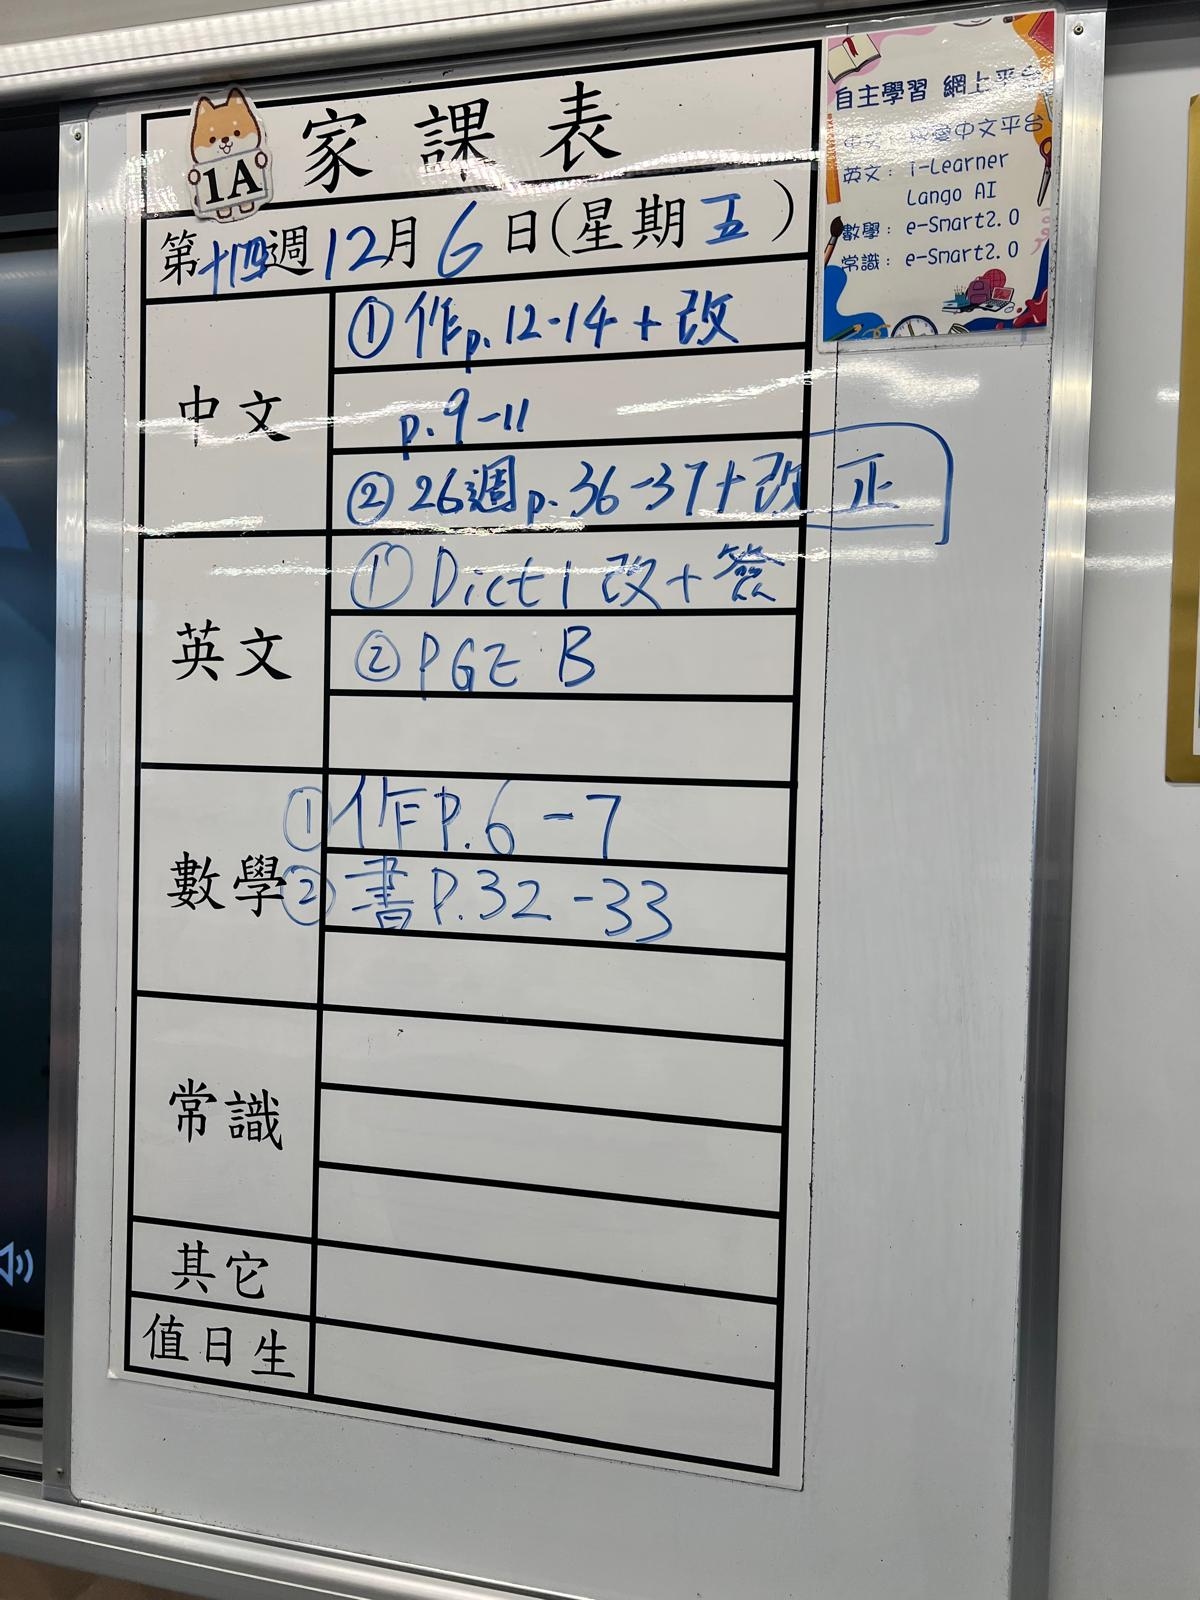 家課表
1A
第十四週12月6日(星期五)
中文
①作p.12-14+改
p.9-11
②26週p.36-37+改正
英文
①Dict1改+簽
②PGE B
數學
①作P.6-7
②書P.32-33
常識
其它
值日生
自主學習 網上平台
中文：我愛中文平台
英文：i-Learner
Lango AI
數學：e-Smart2.0
常識：e-Smart2.0